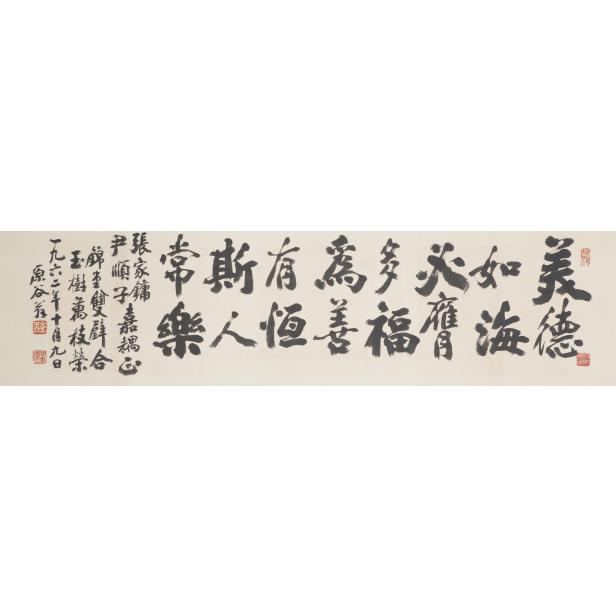 美德
如海
必膺
多福
為善
有恆
斯人
常樂
張家鏞
尹順子嘉耦正
錦堂雙璧合
玉樹萬枝榮
一九六二年十月九日
原谷翁